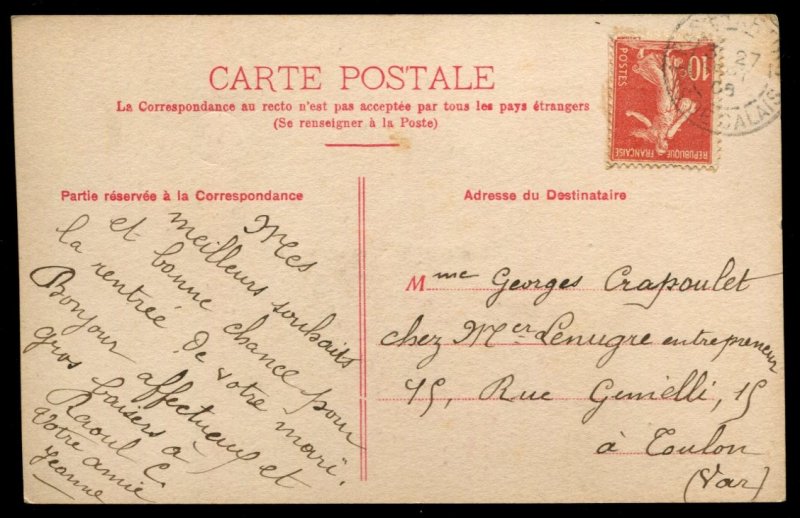 CARTE POSTALE
La Correspondance au recto n'est pas acceptée par tous les pays étrangers
(Se renseigner à la Poste)
Partie réservée à la Correspondance
Mes
meilleurs souhaits
et bonne chance pour
la rentrée de votre mari.
Bonjour affectueux et
gros baisers à
Raoul C.
Votre amie
Jeanne
Adresse du Destinataire
Mme Georges Crapoulet
chez Mer Lenugre entrepreneur
15, Rue Gimelli, 15
à Toulon
(Var)
10
POSTES
REPUBLIQUE FRANÇAISE
27
CALAIS